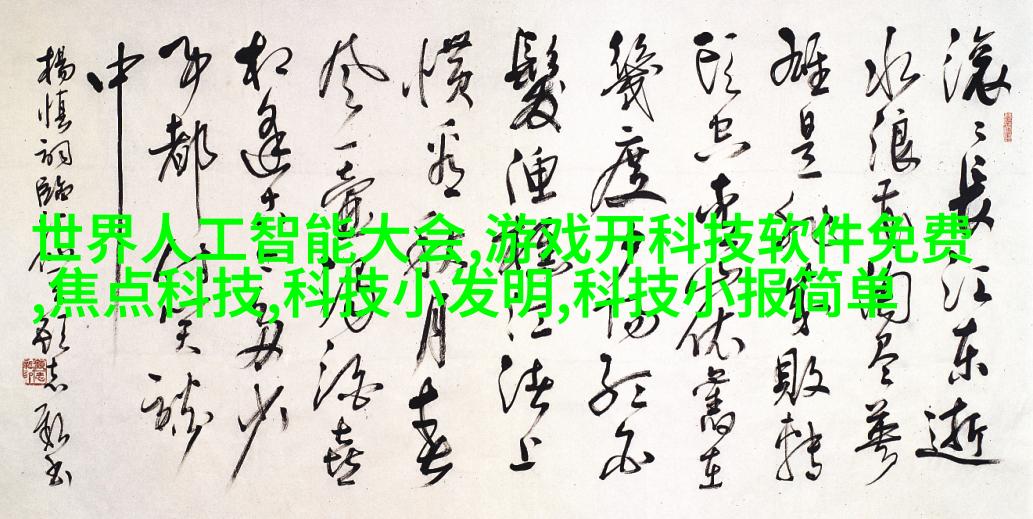 世界人工智能大会,游戏开科技软件免费
,焦点科技,科技小发明,科技小报简单
滚〻長江东逝
水浪花淘尽英
雄是非成敗轉
头空青山依舊在
幾度夕阳红白
髮漁樵江渚上
慣看秋月春
风一壶浊酒喜
相逢古今多少
事都付笑談
中
楊慎詞臨江仙